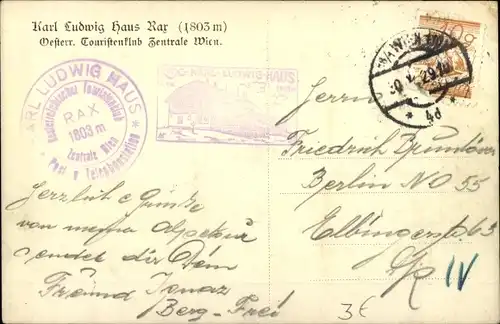 Karl Ludwig Haus Rax (1803 m)
Oesterr. Touristenklub Zentrale Wien.
KARL LUDWIG HAUS
Oesterreichischer Touristenklub
RAX
1803 m
Zentrale Wien
Post u Telephonstation
KARL-LUDWIG-HAUS
Herrn
Friedrich
Berlin NO 55
Elbingerstr 63
IV
Herzliche Grüße
von meiner
sendet dir Dein
Freund Ignaz
Berg-Frei
3€